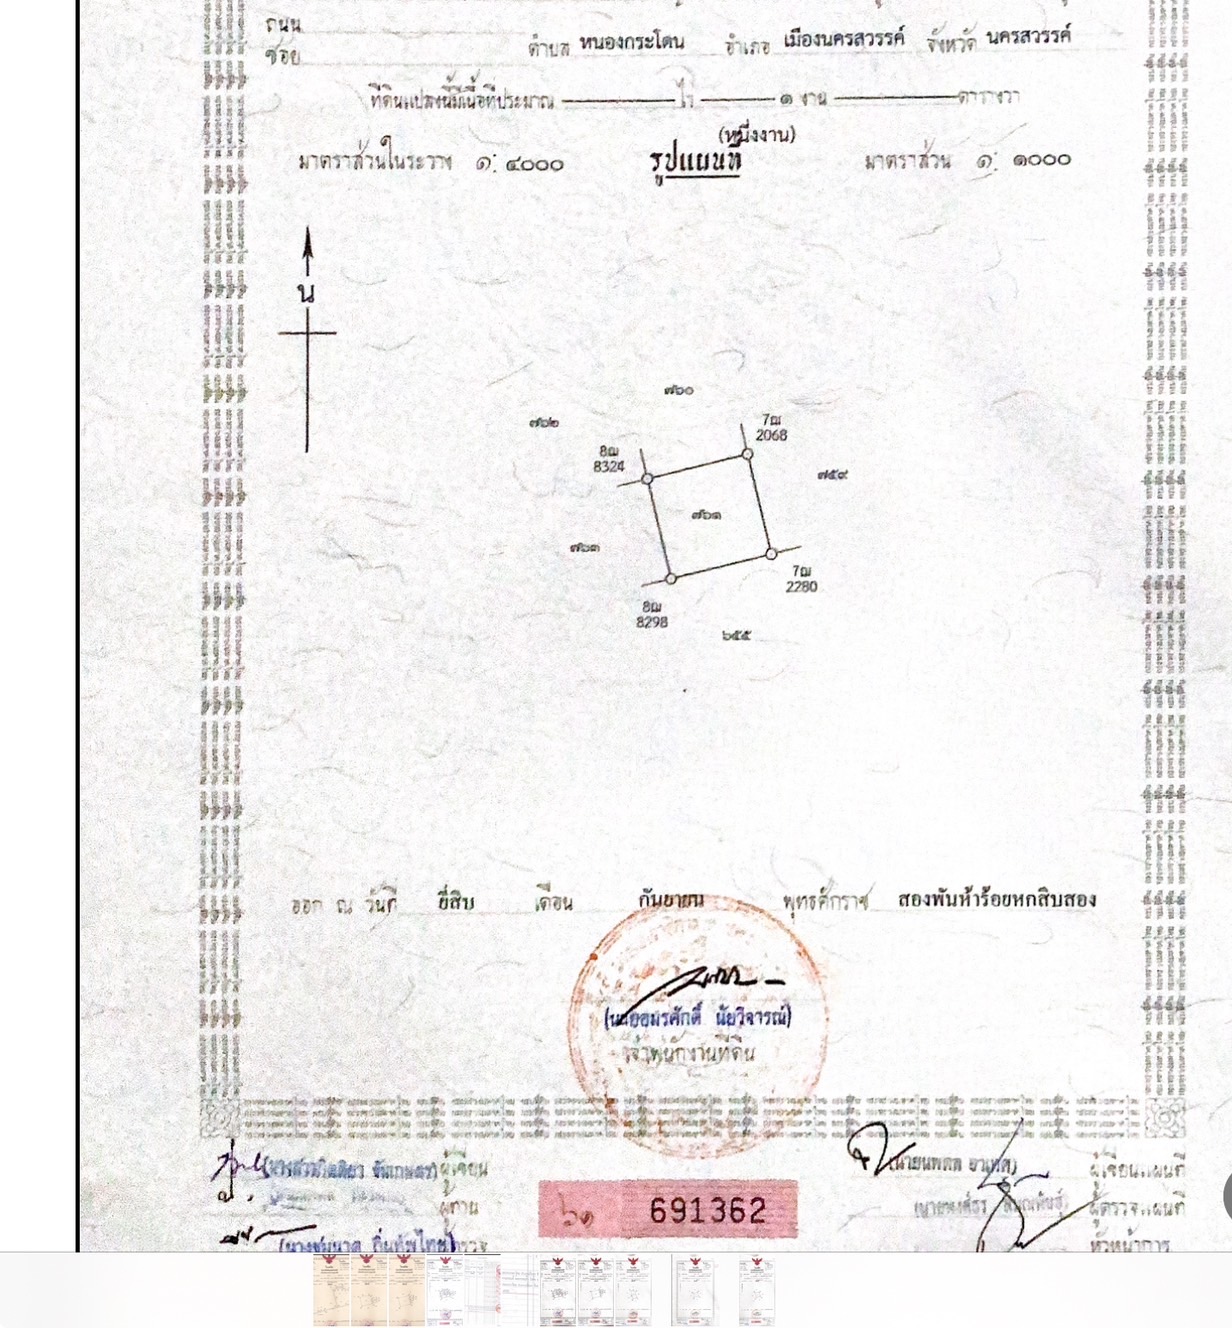 ถนน
ซอย
ตำบล หนองกระโดน อำเภอ เมืองนครสวรรค์ จังหวัด นครสวรรค์
ที่ดินแปลงนี้มีเนื้อที่ประมาณ ไร่ ๑ งาน ตารางวา
(หนึ่งงาน)
มาตราส่วนในระวาง ๑: ๔๐๐๐ รูปแผนที่ มาตราส่วน ๑: ๑๐๐๐
น
๗๖๐
๗๖๒
7ฌ
2068
8ฌ
8324
๗๕๙
๗๖๑
๗๖๓
7ฌ
2280
8ฌ
8298
๖๕๕
ออก ณ วันที่ ยี่สิบ เดือน กันยายน พุทธศักราช สองพันห้าร้อยหกสิบสอง
(นายอมรศักดิ์ นัยวิจารณ์)
เจ้าพนักงานที่ดิน
ผู้เขียน
ผู้เขียนแผนที่
ผู้ทาน
๖๑ 691362
ผู้ตรวจแผนที่
ตรวจ
หัวหน้าการ